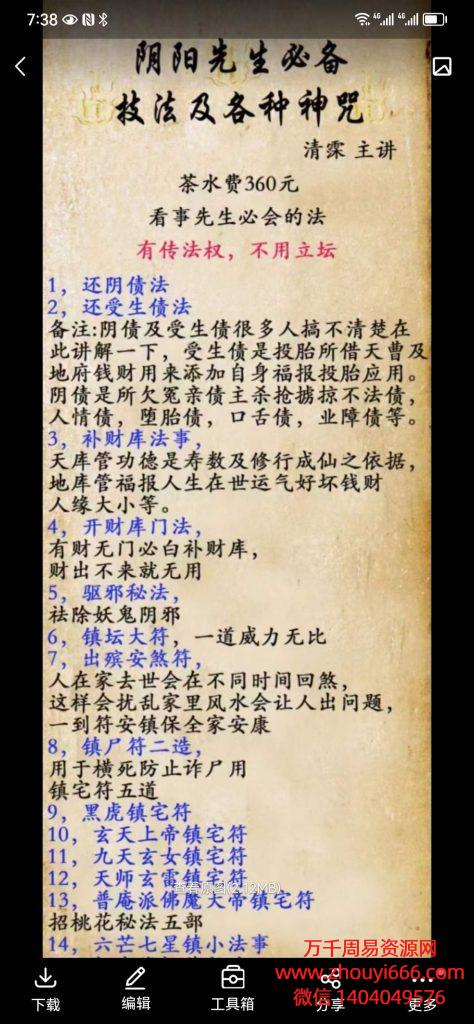 7:38
4G
4G
阴阳先生必备
技法及各种神咒
清霂 主讲
茶水费360元
看事先生必会的法
有传法权，不用立坛
1，还阴债法
2，还受生债法
备注:阴债及受生债很多人搞不清楚在
此讲解一下，受生债是投胎所借天曹及
地府钱财用来添加自身福报投胎应用。
阴债是所欠冤亲债主杀抢掳掠不法债，
人情债，堕胎债，口舌债，业障债等。
3，补财库法事，
天库管功德是寿数及修行成仙之依据，
地库管福报人生在世运气好坏钱财
人缘大小等。
4，开财库门法，
有财无门必白补财库，
财出不来就无用
5，驱邪秘法，
祛除妖鬼阴邪
6，镇坛大符，一道威力无比
7，出殡安煞符，
人在家去世会在不同时间回煞，
这样会扰乱家里风水会让人出问题，
一到符安镇保全家安康
8，镇尸符二造，
用于横死防止诈尸用
镇宅符五道
9，黑虎镇宅符
10，玄天上帝镇宅符
11，九天玄女镇宅符
12，天师玄雷镇宅符
13，普庵派佛魔大帝镇宅符
招桃花秘法五部
14，六芒七星镇小法事
查看原图(2.12MB)
万千周易资源网
www.zhouyi666.com
微信 1404049576
下载
编辑
工具箱
分享
更多